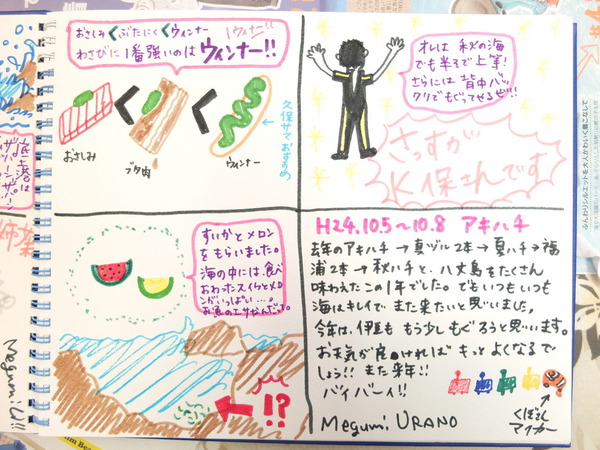 おさしみくぶたにくくウィンナー
ウィンナー!!
わさびに1番強いのはウィンナー!!
おさしみ
ブタ肉
ウィンナー
久保サンでおすすめ
オレは秋の海
でも半そで上等!
さらには背中パッ
クリでもぐってやるぜ!!
さっすが
K保さんです
すいかとメロン
をもらいました。
海の中には食べ
おわったスイカとメロ
ンがいっぱい…。
お魚のエサなんだって。
!?
H24.10.5~10.8 アキハチ
去年のアキハチ→真ヅル2本→夏ハチ→福
浦2本→秋ハチと、八丈島をたくさん
味わえたこの1年でした。でもいつもいつも
海はキレイで また来たいと思いました。
今年は、伊豆も もう少しもぐろうと思います。
お天気が良ければ もっとよくなるで
しょう!! また来年!!
バイバーイ!!
Megumi URANO
くぼさん
マイカー
Megumi U!!
ふんわりシルエットを大人かわいく着こなして